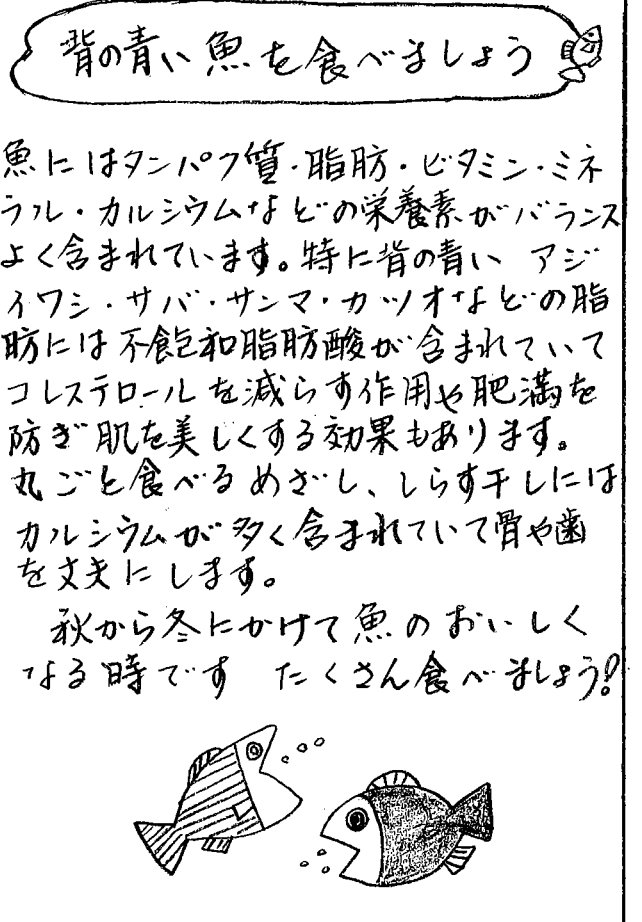 背の青い魚を食べましょう
魚にはタンパク質・脂肪・ビタミン・ミネ
ラル・カルシウムなどの栄養素がバランス
よく含まれています。特に背の青い アジ
イワシ・サバ・サンマ・カツオなどの脂
肪には不飽和脂肪酸が含まれていて
コレステロールを減らす作用や肥満を
防ぎ肌を美しくする効果もあります。
丸ごと食べるめざし、しらす干しには
カルシウムが多く含まれていて骨や歯
を丈夫にします。
秋から冬にかけて魚のおいしく
なる時です たくさん食べましょう!